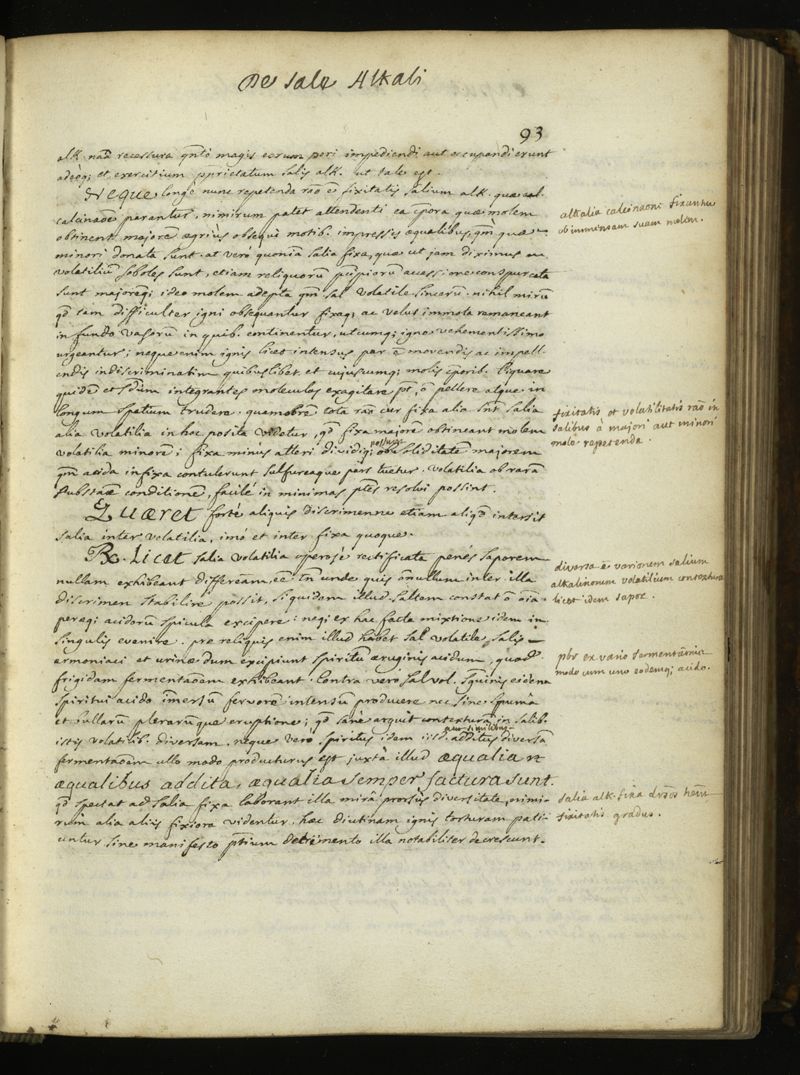 De sale Alkali
93
alk. nad recessura qnto magis eorum pori impediendi aut occupandi erunt
adeoq; et exercitium pprietatum salis alk. ut tale est.
Neque longe nunc repetenda rao e fixitatis salium alk. quae cal-
calcinaoe parantur, nimirum patet attendenti ea cpora quae molem
obtinent majore aegrius obsequi motib. impressis aequalibus, qm quae
minori donata sunt. at vero quonia salia fixa, quae ut jam diximus
volatiliu soboles sunt, etiam reliquoru pcipioru accessione conspurcata
sunt majoreq; ideo molem adepta qm sal volatile sinceru. nihil miru
qd tam difficulter igni obsequantur fixaq; ac velut immota remaneant
in fundo vasoru in quib. continentur, utcumq; igne vehementissimo
urgeantur; neque enim ignis licet intensus par e movendis ac impell-
endis indiscriminatim quibuslibet et cujuscumq; molis cporib.
quide et sdum integrantes moleculas exagitare pt, o pellere atque in
longum spatium trudere. quamobre tota rao cur fixa alia snt salia
alia volatilia in hoc posita videtur, qd fixa majore obtineant molem
volatilia minore; fixa minus atteri dividiq; possunt ob soliditate majorem
qm acida infixa contulerunt sulfureaque pars tuetur. volatilia ob rara
substae conditione, facile in minimas ptes resolvi possint.
Quaeret forte aliquis discrimenne etiam aliqd intersit
salia inter volatilia, imo et inter fixa quoque.
Rx. Licet salia volatilia operose rectificata penes saporem
nullam exhibeant differeam, ee tn unde quis onullum inter illa
discrimen stabilire possit, siquidem illud saltem constat o oia
peraeq; acidoru spicula excipere; neq; ex hac facta mixtione idem in
singulis evenire. prae reliquis enim illud habet sal volatile salis
armoniaci et urinae dum excipiunt spiritu aeruginis acidum, quod
frigidam fermentaoem exhibeant. Contra vero sal vol. sguinis eidem
spiritui acido imersu fervore intensu producere nec sine spuma
et bullaru plerarumque eruptione; qd sane arguit contextura in salib.
istis volatilib. diversam, neque vero spiritus idem iisd. additus diversa
fermentaoem ullo modo producturus est juxta illud aequalia
aequalibus addita, aequalia semper factura sunt.
qd spectat ad salia fixa laborant illa mira prorsus diversitate, nimi-
rum alia aliis fixiora videntur, haec diutinam ignis torturam pati-
untur sine manifesto ptium detrimento illa notabiliter decrescunt.
alkalia calcinaoni fixantur
ob imminsam suam molem.
fixitatis et volatilitatis rao in
salibus a majori aut minori
mole repetenda.
diversa e variorum salium
alkalinorum volatilium contextura
licet idem sapor.
pbr ex vario fermentaonis
modo cum uno eodemq; acido.
salia alk. fixa drsos hent
fixitatis gradus.